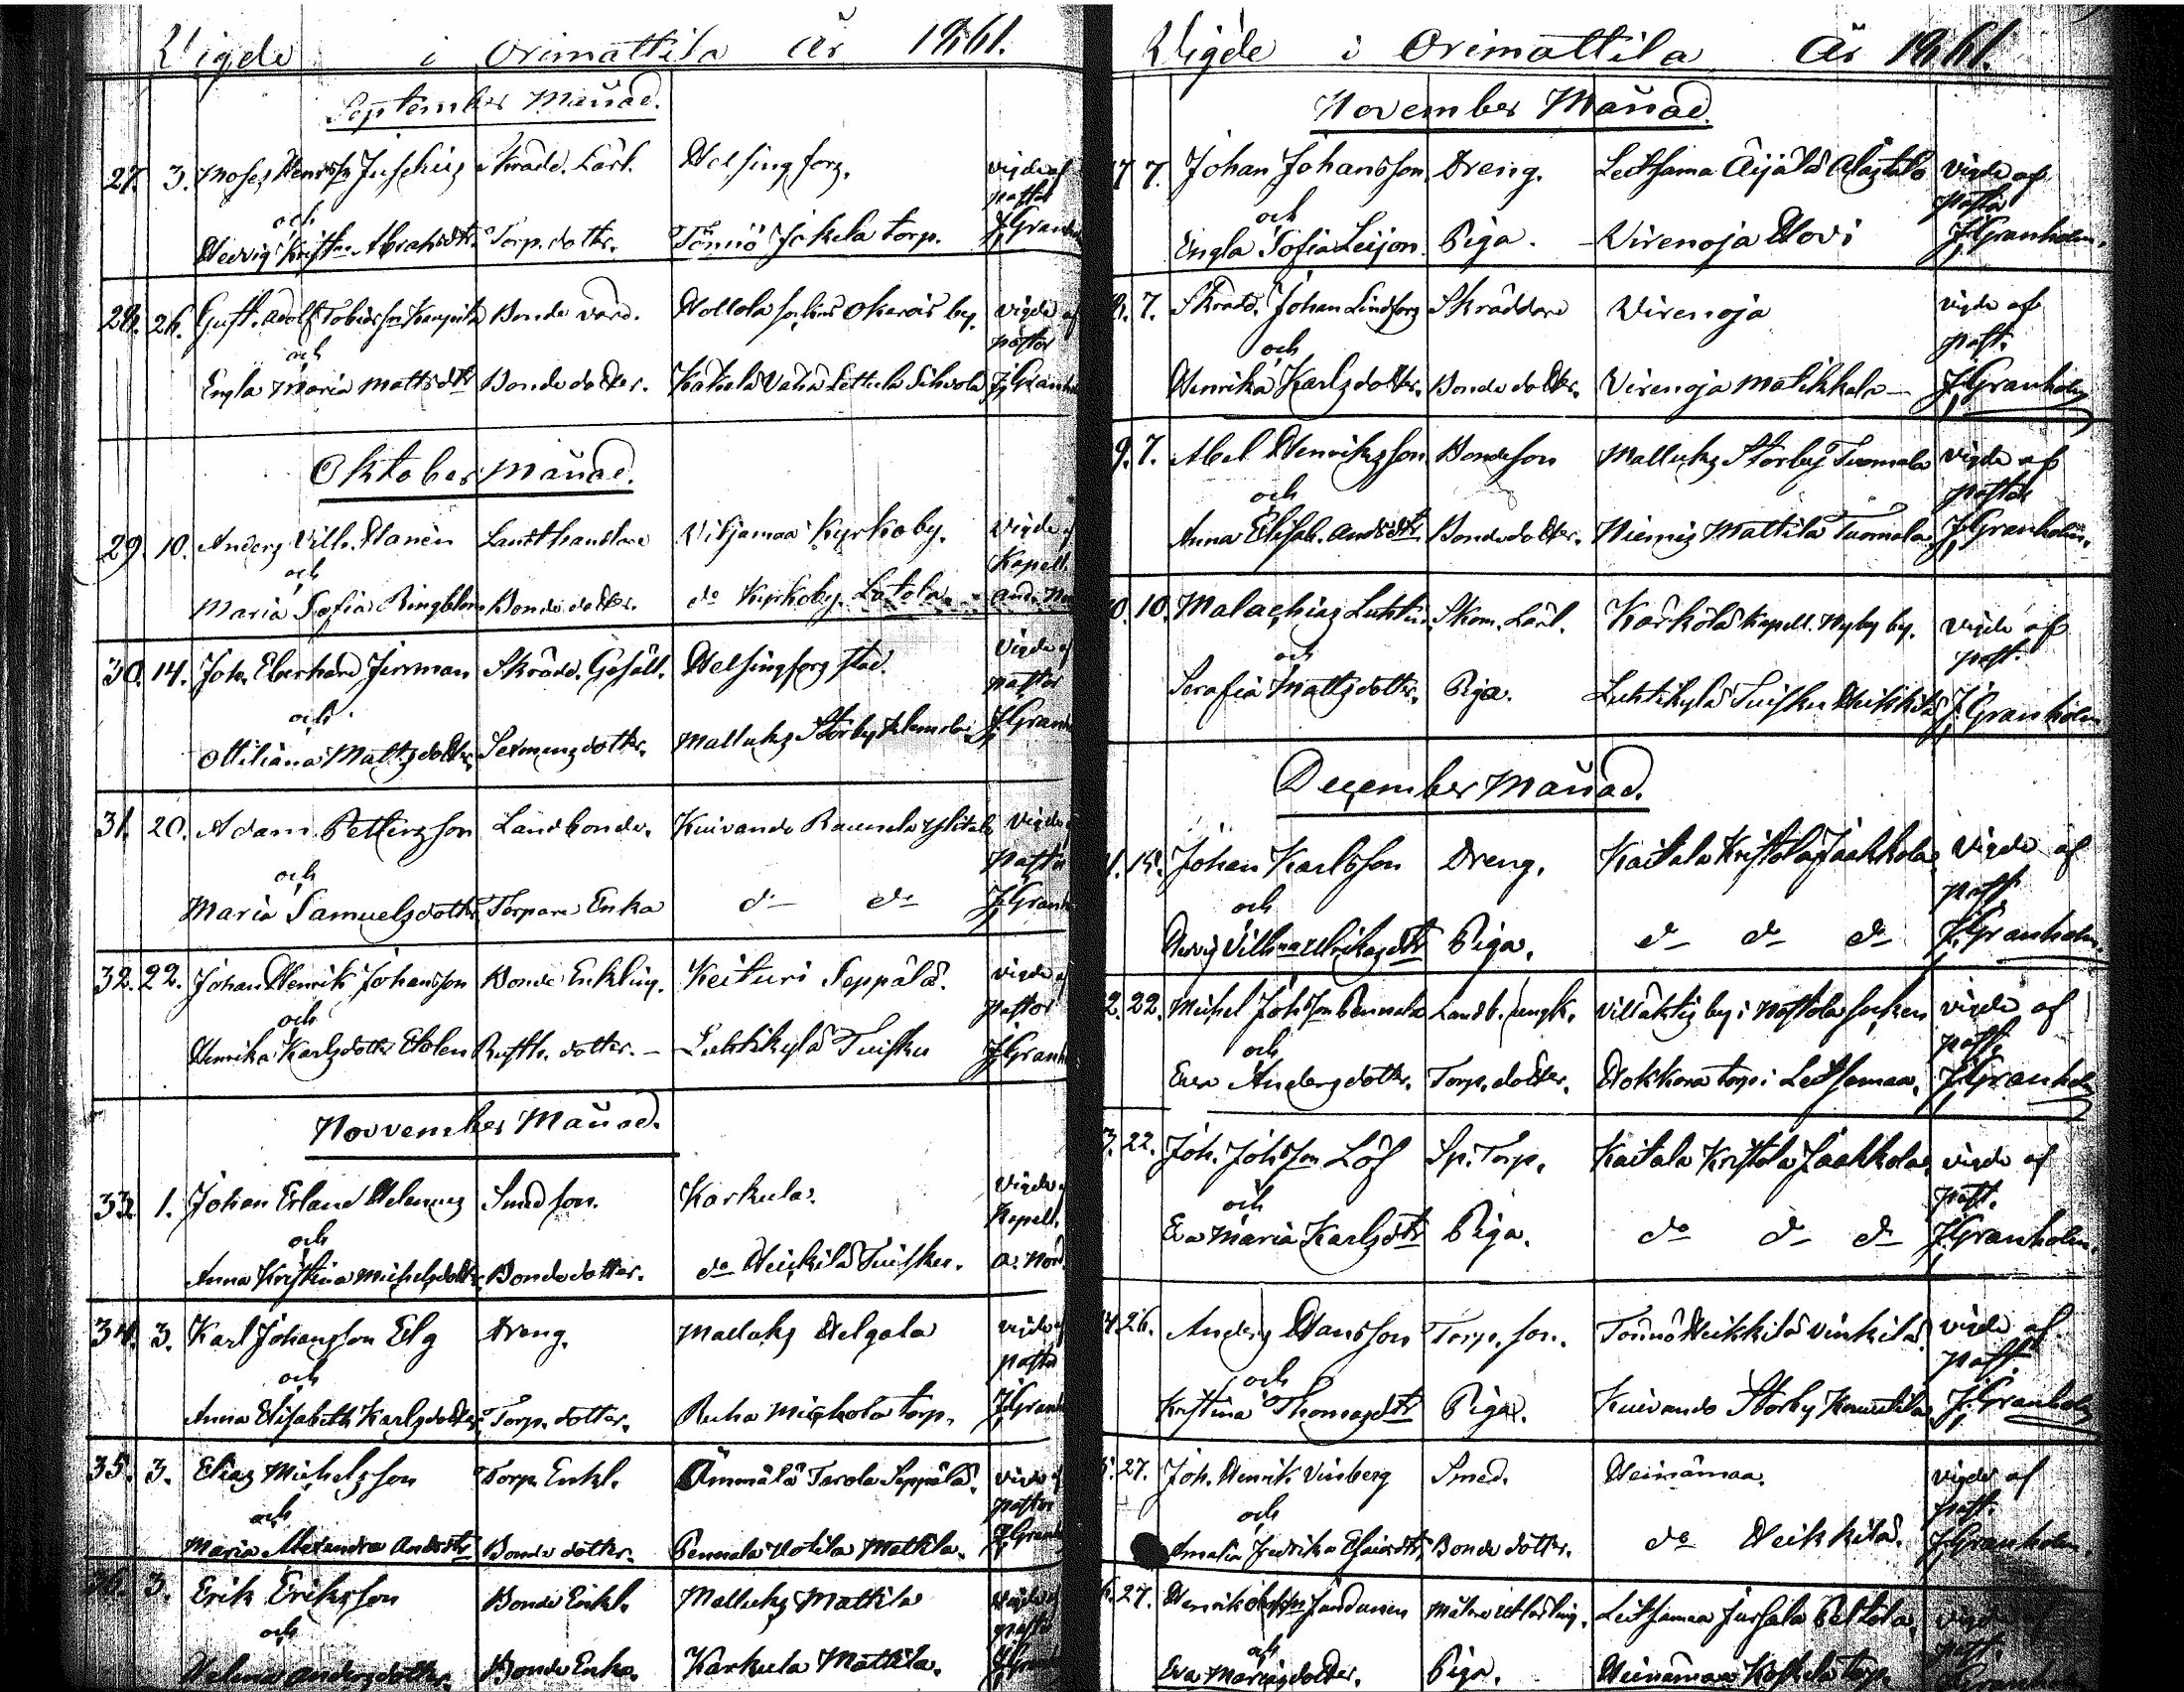 Vigde i Orimattila År 1861.
September Månad.
27. 3. Moses Henrsson Juselius Skrädd. Lärl. Helsingfors. vigde af
och pastor
Hedvig Kristin Abrahsdtr. Torp. dotter. Tönnö Jokela torp. J. Granholm
28. 26. Gust. Adolf Tobiasson Bonde värd. Hollola socken Okerois by. vigde af
och pastor
Engla Maria Mattsdtr Bonde dotter. J. Granholm
Oktober Månad.
29. 10. Anders Vilh. Landthandlare Viljamaa Kyrkoby. vigde af
och Kapell.
Maria Sofia Ringblom Bonde dotter. do Kyrkoby Latola
30. 14. Joh. Eberhard Jirrman Skrädd. Gesäll. Helsingfors stad. vigde af
och pastor
Ottiliana Mattsdotter Sexmansdotter. Mallusj Storby J. Granholm
31. 20. Adam Pettersson Landbonde. Kuivando Raumola Ylitalo vigde af
och pastor
Maria Samuelsdotter Torpare Enka do do J. Granholm
32. 22. Johan Henrik Johansson Bonde Enkling. Keituri Seppälä. vigde af
och pastor
Henrika Karlsdotter Rusth. dotter. Luhtikylä Tuisku J. Granholm
November Månad.
33. 1. Johan Erland Helenius Smed son. Karkula. vigde af
och Kapell.
Anna Kristina Michelsdotter Bonde dotter. do Heikkilä Tuisku. A. Nord.
34. 3. Karl Johansson Elg Dreng. Mallusj Helgala vigde af
och pastor
Anna Elisabeth Karlsdotter Torp. dotter. Ruha torp. J. Granholm
35. 3. Elias Michelsson Torp. Enkl. Ämmälä Tarola Seppälä. vigde af
och pastor
Maria Alexandra Andersdtr Bonde dotter. Pennala Uotila Mattila. J. Granholm
36. 3. Erik Eriksson Bonde Enkl. Mallusj Mattila vigde af
och pastor
Helena Andersdotter. Bonde Enka. Karkula Mattila. J. Granholm
Vigde i Orimattila År 1861.
November Månad.
7 7. Johan Johansson Dreng. Leitsama Äijälä Alastalo vigde af
och pastor
Engla Sofia Leijon Piga. Virenoja Hovi J. Granholm.
7. Skrädd. Johan Lindfors Skräddare Virenoja vigde af
och past.
Henrika Karlsdotter. Bonde dotter. Virenoja Matikkala J. Granholm
9. 7. Abel Henriksson Bondeson Mallusj Storby Tuomala vigde af
och pastor
Anna Elisab. Andsdtr Bonde dotter. Niemis Mattila Tuomala J. Granholm.
0. 10. Malachias Luhtin Skom. Lärl. Kärkölä Kapell. Nyby by. vigde af
och past.
Serafia Mattsdotter. Piga. Luhtikylä Tuisku Heikkilä J. Granholm
December Månad.
1. 15. Johan Karlsson Dreng. Kaitala Kristola Jaakkola vigde af
och past.
Hedvig Vilhna Ulriksdtr Piga. do do do J. Granholm.
2. 22. Michel Johsson Pennala Landb. Villähtis by i Nastola socken vigde af
och past.
Eva Andersdotter. Torp. dotter. Hokkora torp i Leitsamaa. J. Granholm
3. 22. Joh. Johsson Löf Sp. Torp. Kaitala Kristola Jaakkola vigde af
och past.
Eva Maria Karlsdtr Piga. do do do J. Granholm.
4. 26. Anders Hansson Torp. son. Tönnö Heikkilä Vinkilä vigde af
och past.
Kristina Thomasdtr Piga. Kuivando Storby J. Granholm
5. 27. Joh. Henrik Vinberg Smed. Heinämaa. vigde af
och past.
Amalia Fredrika Esaiasdtr Bonde dotter. do Heikkilä. J. Granholm.
6. 27. Henrik Leitsamaa Jussala Peltola vigde af
och past.
Eva Mariasdotter. Piga. Heinämaa Koskela torp. J. Granholm